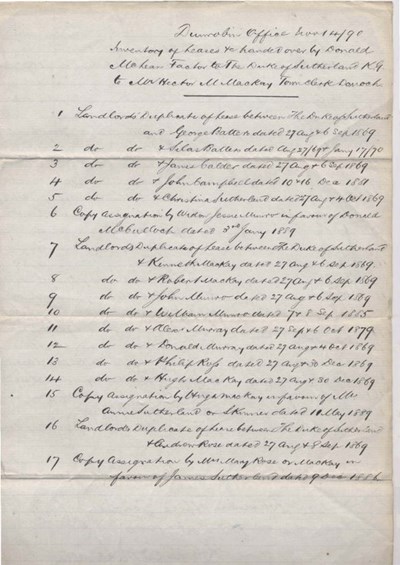 Dunrobin Office Nov 14/90
Inventory of Leases &c handed over by Donald
McLean Factor to The Duke of Sutherland K.G.
to Mr Hector M. MacKay Town Clerk Dornoch
1 Landlords Duplicate of lease between The Duke of Sutherland
and George dated 27 Aug & 6 Sep 1869
2 do do & Silas dated Aug 27/69 & Jany 17/70
3 do do & James Calder dated 27 Aug & 6 Sep 1869
4 do do & John Campbell dated 10 & 16 Dec
5 do do & Christina Sutherland dated 27 Aug & 4 Oct 1869
6 Copy Assignation by Munro in favour of Donald
McCulloch dated 3rd Jany 1889
7 Landlords Duplicate of lease between the Duke of Sutherland
& Kenneth MacKay dated 27 Aug & 6 Sep 1869
8 do do & Robert MacKay dated 27 Aug & 6 Sep 1869
9 do do & John Munro dated 27 Aug & 6 Sep 1869
10 do do & William Munro dated 7 & 8 Sep 1885
11 do do & Alexr Murray dated 27 Sep & 6 Oct 1879
12 do do & Donald Murray dated 27 Aug & 4 Oct 1869
13 do do & Philip Ross dated 27 Aug & 30 Dec 1869
14 do do & Hugh MacKay dated 27 Aug & 30 Dec 1869
15 Copy Assignation by Hugh MacKay in favour of Mrs
Annie Sutherland or Skinner dated 11 May 1889
16 Landlords Duplicate of lease between The Duke of Sutherland
& Rose dated 27 Aug & 8 Sep 1869
17 Copy Assignation by Mrs Mary Rose or MacKay in
favour of James Sutherland dated 9 Dec 1886